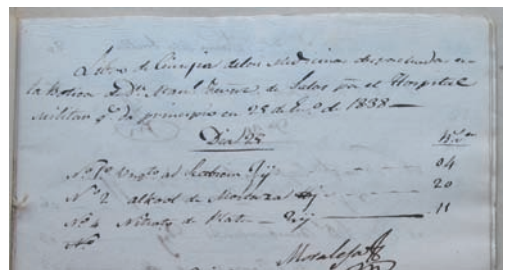 Libro de Cuenta de las Medicinas despachadas en
la Botica de Dn. Manl. de Salas pa. el Hospital
Militar qe. da principio en 25 de Eno. de 1838 —
Dia 25
No. 1o Ungto. al Scabiem ʒij 04
No. 2 alkool de Mostaza 20
No. 4 Nitrato de Plata — ʒij 11
No.
Morales